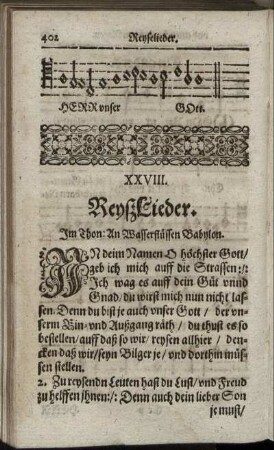 402 Reyselieder.
HERR vnser GOtt.
XXVIII.
ReyßLieder.
Im Thon: An Wasserflüssen Babylon.
IN deim Namen O höchster Gott/
geb ich mich auff die Strassen:/:
Ich wag es auff dein Güt vnnd
Gnad/ du wirst mich nun nicht las-
sen. Denn du bist je auch vnser Gott / der vn-
serm Ein- vnd Außgang räth / du thust es so
bestellen/ auff daß so wir / reysen allhier / den-
cken daß wir/seyn Bilger je/ vnd dorthin müs-
sen stellen.
2. Zu reysendn Leuten hast du Lust/ vnd Freud
zu helffen ihnen:/: Denn auch dein lieber Son
je must/